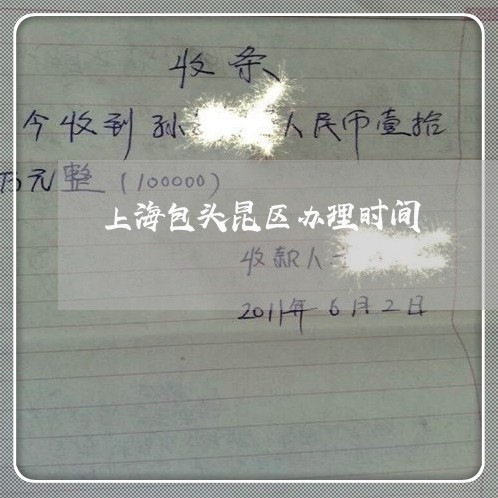 收条
今收到孙 人民币壹拾
万元整（100000）
上海包头昆区办理时间
收款人
2011年6月2日